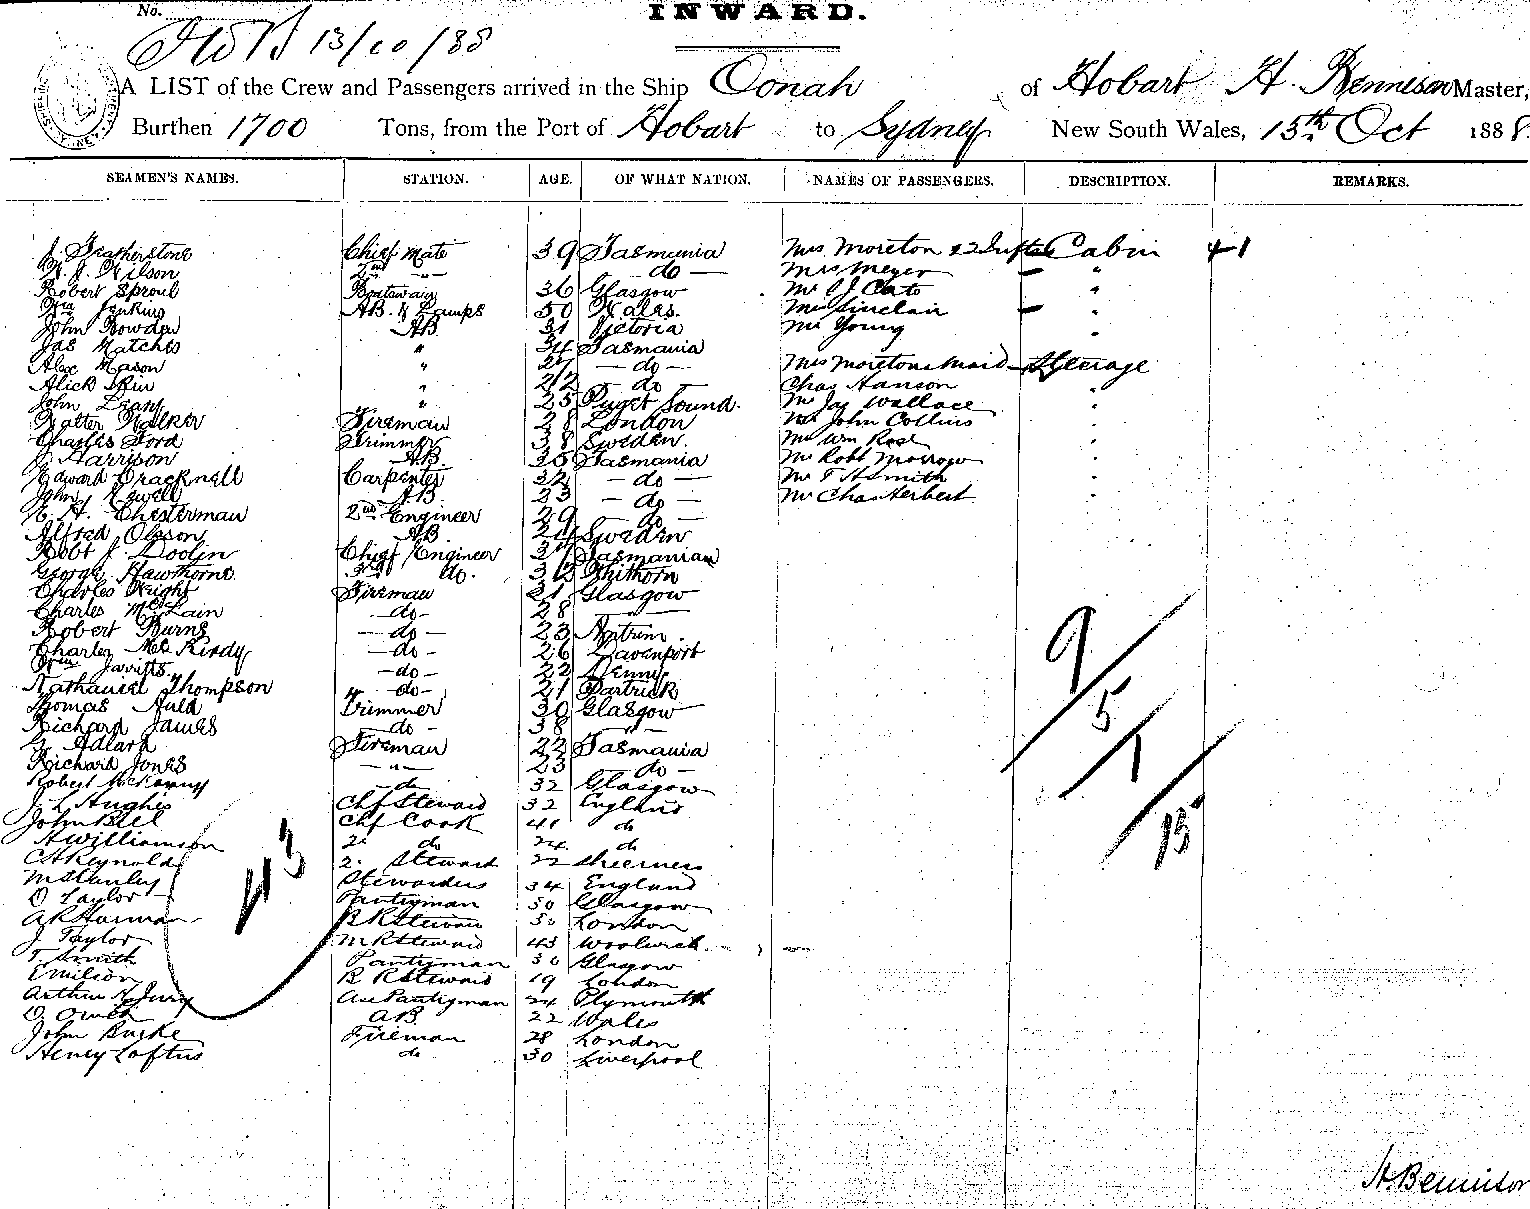 No.
INWARD.
13/10/88
A LIST of the Crew and Passengers arrived in the Ship Oonah of Hobart H. Bennison Master,
Burthen 1700 Tons, from the Port of Hobart to Sydney New South Wales, 15th Oct 1888.
SEAMEN'S NAMES. STATION. AGE. OF WHAT NATION. NAMES OF PASSENGERS. DESCRIPTION. REMARKS.
J. Featherstone Chief Mate 39 Tasmania Mrs Moreton & 2 Cabin + 1
W. J. Wilson 2nd -"- - do - Mrs Meyer "
Robert Sproul Boatswain 36 Glasgow Mr J Cato "
Wm Jenkins A.B. & Lamps 50 Wales. Sinclair "
John Bowden A.B. 31 Victoria Mr Young "
Jas Matches " 34 Tasmania
Alex Mason " 27 - do - Mrs Moretons Maid Steerage
Alick Skin " 22 - do - Chas Hanson "
John " 25 Puget Sound. Mr Jas Wallace "
Walter Walker Fireman 28 London Mr John Collins "
Charles Ford Trimmer 38 Sweden. Mr Wm Rose "
J. Harrison A.B. 35 Tasmania Mr Robt Morrow "
Edward Cracknell Carpenter 32 - do - Mr T Smith "
John Newell A.B. 23 - do - Mr Chas Herbert "
H. Chesterman 2nd Engineer 29 - do -
Alfred Olsson A.B. 24 Sweden
Robt J. Doolin Chief Engineer 37 Tasmanian
George Hawthorne 3rd do. 32 Whithorn
Charles Wright Fireman 21 Glasgow
Charles McLain - do - 28
Robert Burns - do - 23 Antrim.
Charles Mc Kirdy - do - 26 Davenport
Wm Jarritts. - do - 22 Denny
Nathaniel Thompson - do - 21 Partrick
Thomas Auld Trimmer 30 Glasgow
Richard James - do - 38 -"-
G. Adlard Fireman 22 Tasmania
Richard Jones -"- 23 - do -
Robert do 32 Glasgow
J. L. Hughes Chf Steward 32 England
John Bell Chf Cook 41 do
A Williamson 2. do 24 do
C H Reynolds 2. Steward 22 Sheerness
M Stanley Stewardess 34 England
D Taylor Pantryman 50 Glasgow
A R Harman B R Steward London
J. Taylor M R Steward 43 Woolwich
T. Smith Pantryman 30 Glasgow
E Wilson B R Steward 19 London
Arthur Pantryman 24 Plymouth
D. Owen A.B. 22 Wales
John Burke Fireman 28 London
Henry Loftus do 30 Liverpool
43
9/5/1/15
H. Bennison